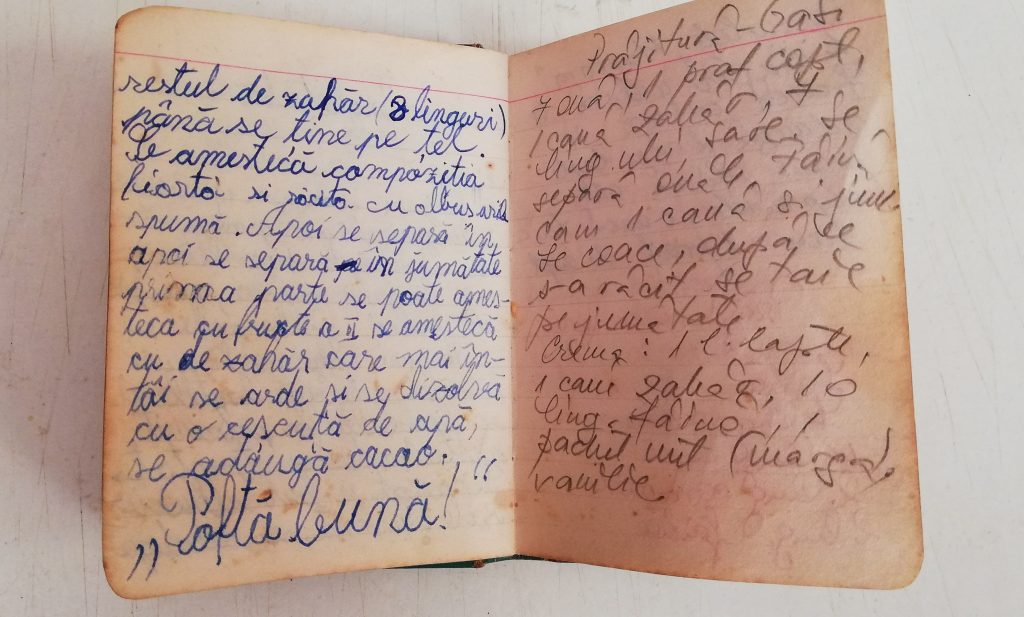 restul de zahăr (8 linguri)
până se ține pe tel.
Se amestecă compoziția
fiartă si răcită cu albus
spumă. Apoi se separă în
apoi se separă în jumătate
prima parte se poate ames-
teca cu frupte a II se amestecă
cu de zahăr care mai în-
tâi se arde și se dizolvă
cu o cescută de apă,
se adaugă cacao.
„Poftă bună!“
Prăjitură
7 ouă, 1 praf copt,
1 cană zahăr, 4
ling. ulei, sare. Se
separă ouăle, făină
cam 1 cană și jum.
Se coace, după ce
s-a răcit se taie
pe jumatate
Crema: 1 l. lapte,
1 cană zahăr, 10
ling. făină, 1
pachet unt (margar.),
vanilie